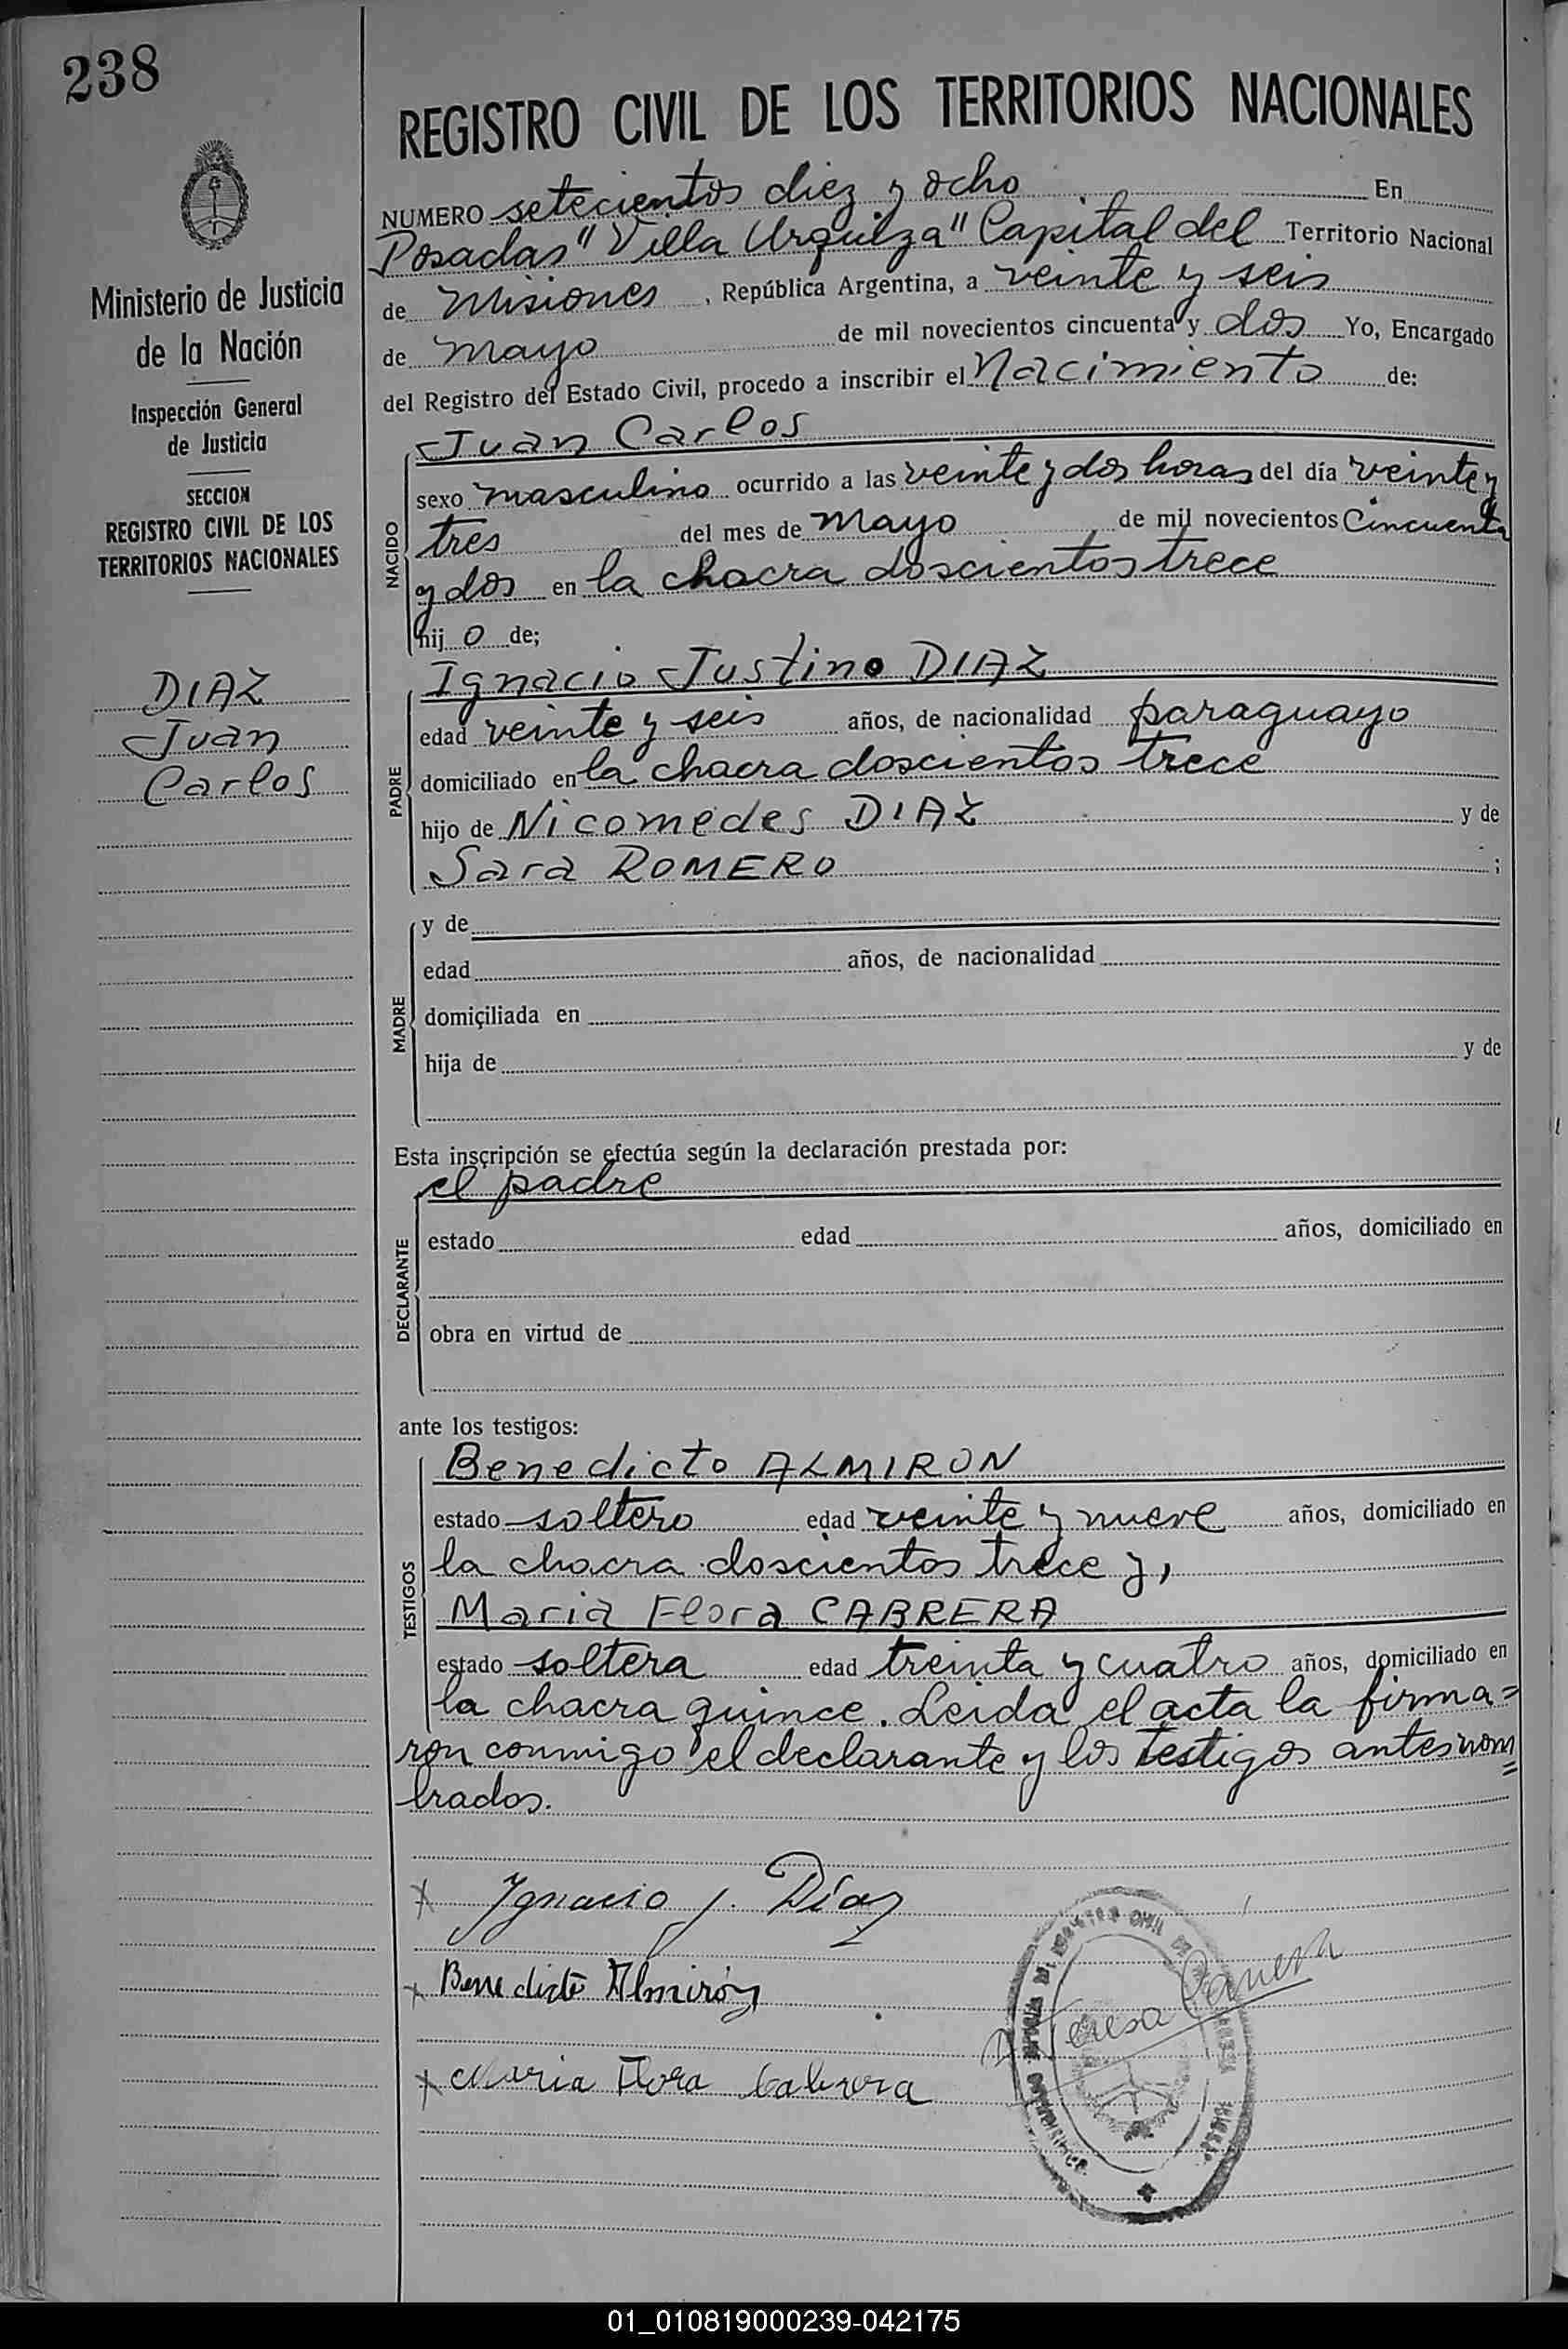 238
REGISTRO CIVIL DE LOS TERRITORIOS NACIONALES
NUMERO setecientos diez y ocho En
Posadas "Villa Urquiza" Capital del Territorio Nacional
de Misiones, República Argentina, a veinte y seis
de Mayo de mil novecientos cincuenta y dos Yo, Encargado
del Registro del Estado Civil, procedo a inscribir el Nacimiento de:
Ministerio de Justicia
de la Nación
Inspección General
de Justicia
SECCION
REGISTRO CIVIL DE LOS
TERRITORIOS NACIONALES
DIAZ
Juan
Carlos
NACIDO
Juan Carlos
sexo masculino ocurrido a las veinte y dos horas del día veinte y
tres del mes de Mayo de mil novecientos Cincuenta
y dos en la chacra doscientos trece
hij o de;
PADRE
Ignacio Justino DIAZ
edad veinte y seis años, de nacionalidad paraguayo
domiciliado en la chacra doscientos trece
hijo de Nicomedes DIAZ y de
Sara ROMERO ;
MADRE
y de
edad años, de nacionalidad
domiciliada en
hija de y de
Esta inscripción se efectúa según la declaración prestada por:
DECLARANTE
el padre
estado edad años, domiciliado en
obra en virtud de
ante los testigos:
TESTIGOS
Benedicto ALMIRON
estado soltero edad veinte y nueve años, domiciliado en
la chacra doscientos trece y,
Maria Flora CABRERA
estado soltera edad treinta y cuatro años, domiciliado en
la chacra quince. Leida el acta la firma=
ron conmigo el declarante y los testigos antes nom=
brados.
x Ignacio J. Díaz
x Benedicto Almirón
x Maria Flora Cabrera
Teresa
01_010819000239-042175